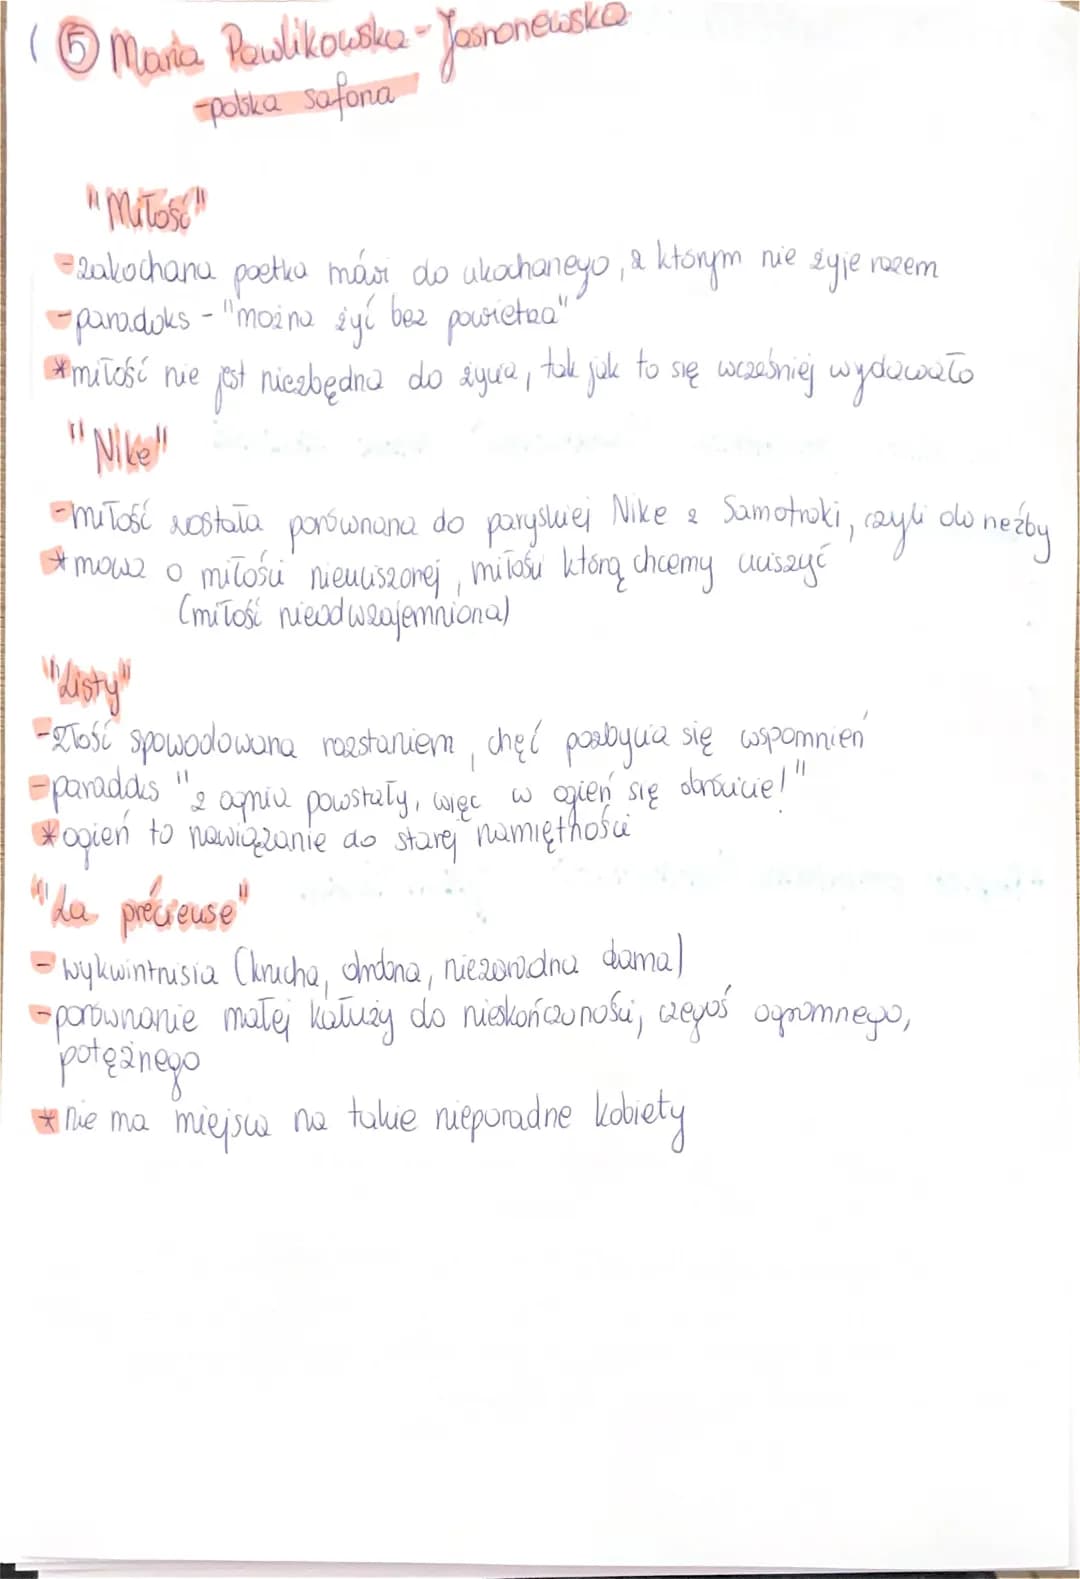 ( 5 Maria Pawlikowska-Jasnorzewska
-polska safona
"Miłość"
-zakochana poetka mówi do ukochanego, z którym nie żyje razem
-paradoks - "można żyć bez powietrza"
*miłość nie jest niezbędna do życia, tak jak to się wcześniej wydawało
"Nike"
-miłość została porównana do paryskiej Nike z Samotraki, czyli do rzeźby
*mowa o miłości nieuciszonej, miłości którą chcemy uciszyć
(miłość nieodwzajemniona)
"Listy"
-złość spowodowana rozstaniem, chęć pozbycia się wspomnień
-paradoks "z ognia powstały, więc w ogień się obróćcie!"
*ogień to nawiązanie do starej namiętności
"La précieuse"
-wykwintnisia (krucha, drobna, niezaradna dama)
-porównanie małej kałuży do nieskończoności, czegoś ogromnego,
potężnego
*nie ma miejsca na takie nieporadne kobiety